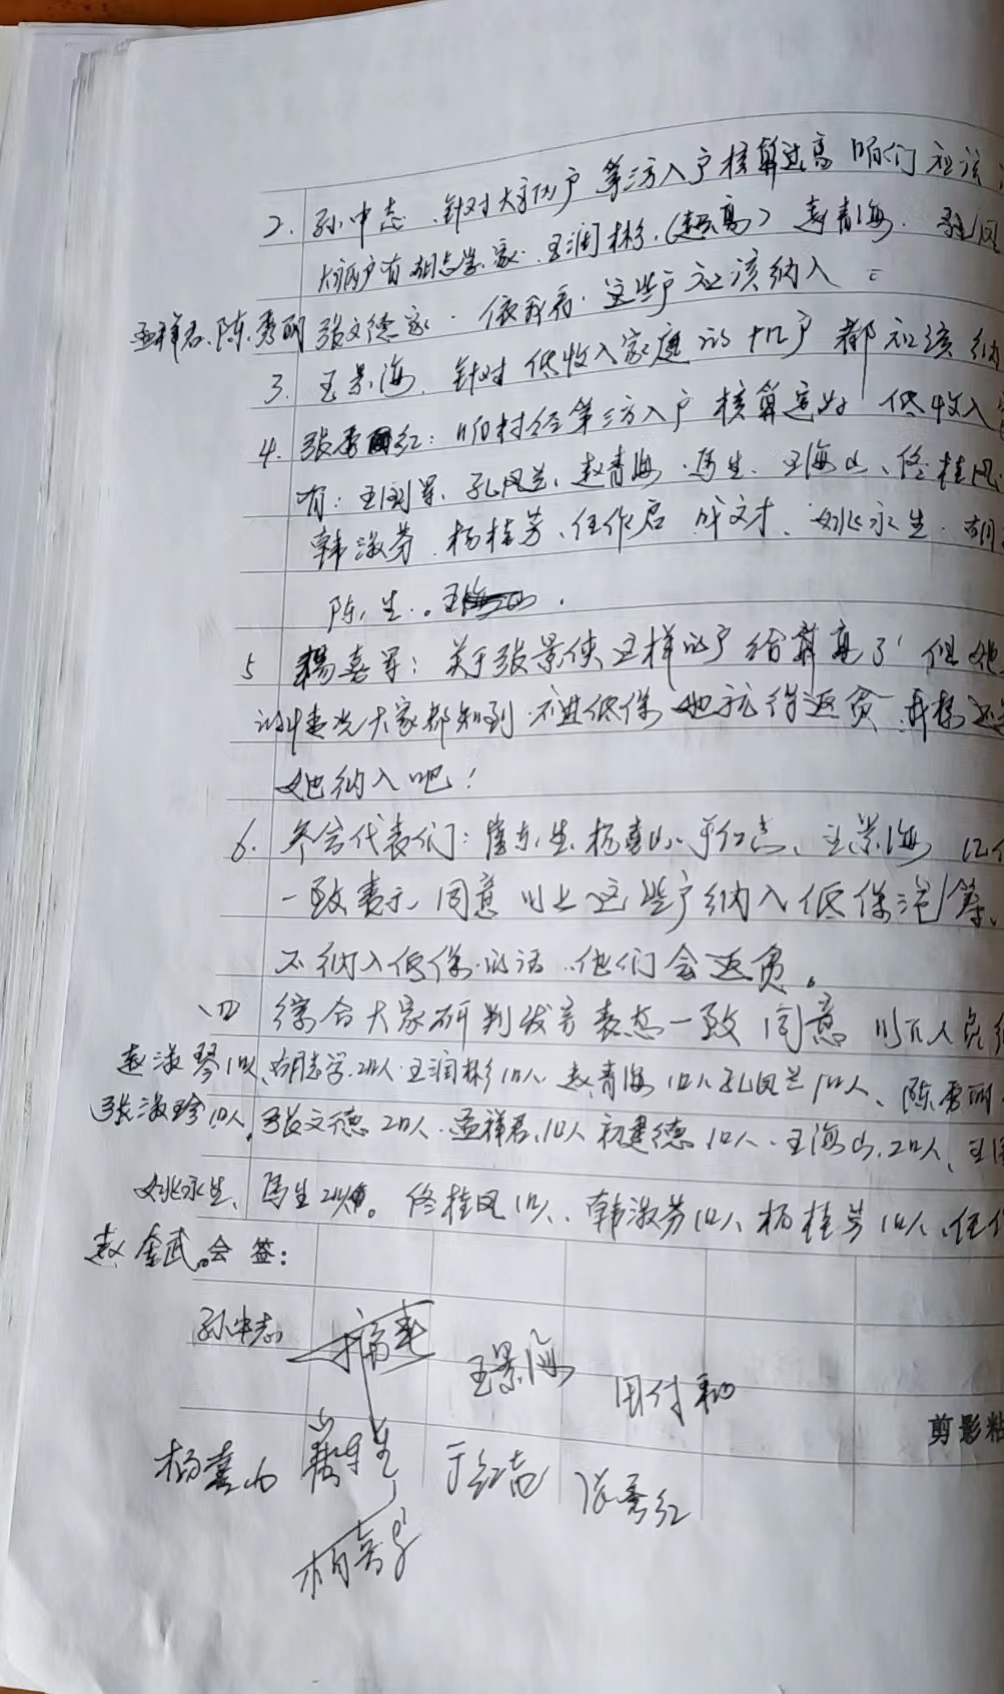 2. 孙中志.针对大病户第三方入户核算过高咱们应该
大病户有胡志学.家.王润彬.(超高)赵青海.
孟祥君.陈秀丽张文德家.依我看.这些户应该纳入
3.王景海.针对低收入家庭的十几户都应该纳
4.张秀红:咱村经第三方入户核算完的低收入
有:王国军、孔凤兰、赵青海.马生.王海山、佟桂凤
韩淑芬.杨桂芳、任作启 成文才、姚永生.胡
陈生.。
5 杨喜军:关于张景侠这样的户给算高了但她
的情况大家都知到.不进低保她就得返贫
她纳入吧!
6.参会代表们:杨喜山、于红志、王景海 12
一致表示同意以上这些户纳入低保范筹、
不纳入低保的话.他们会返贫。
四 综合大家研判发言表态一致同意以下人员
赵淑琴1口人、胡志学.2口人.王润彬1口人.赵青海1口人孔凤兰1口人、陈秀丽
张淑珍1口人,张文德2口人.孟祥君,1口人 德1口人.王海山.2口人、王
姚永生、马生。佟桂凤1口人、韩淑芬1口人杨桂芳1口人、任
赵金武。会签:
孙中志 王景海 田付和
剪影粘
杨喜山 于红志 张秀红
杨喜军